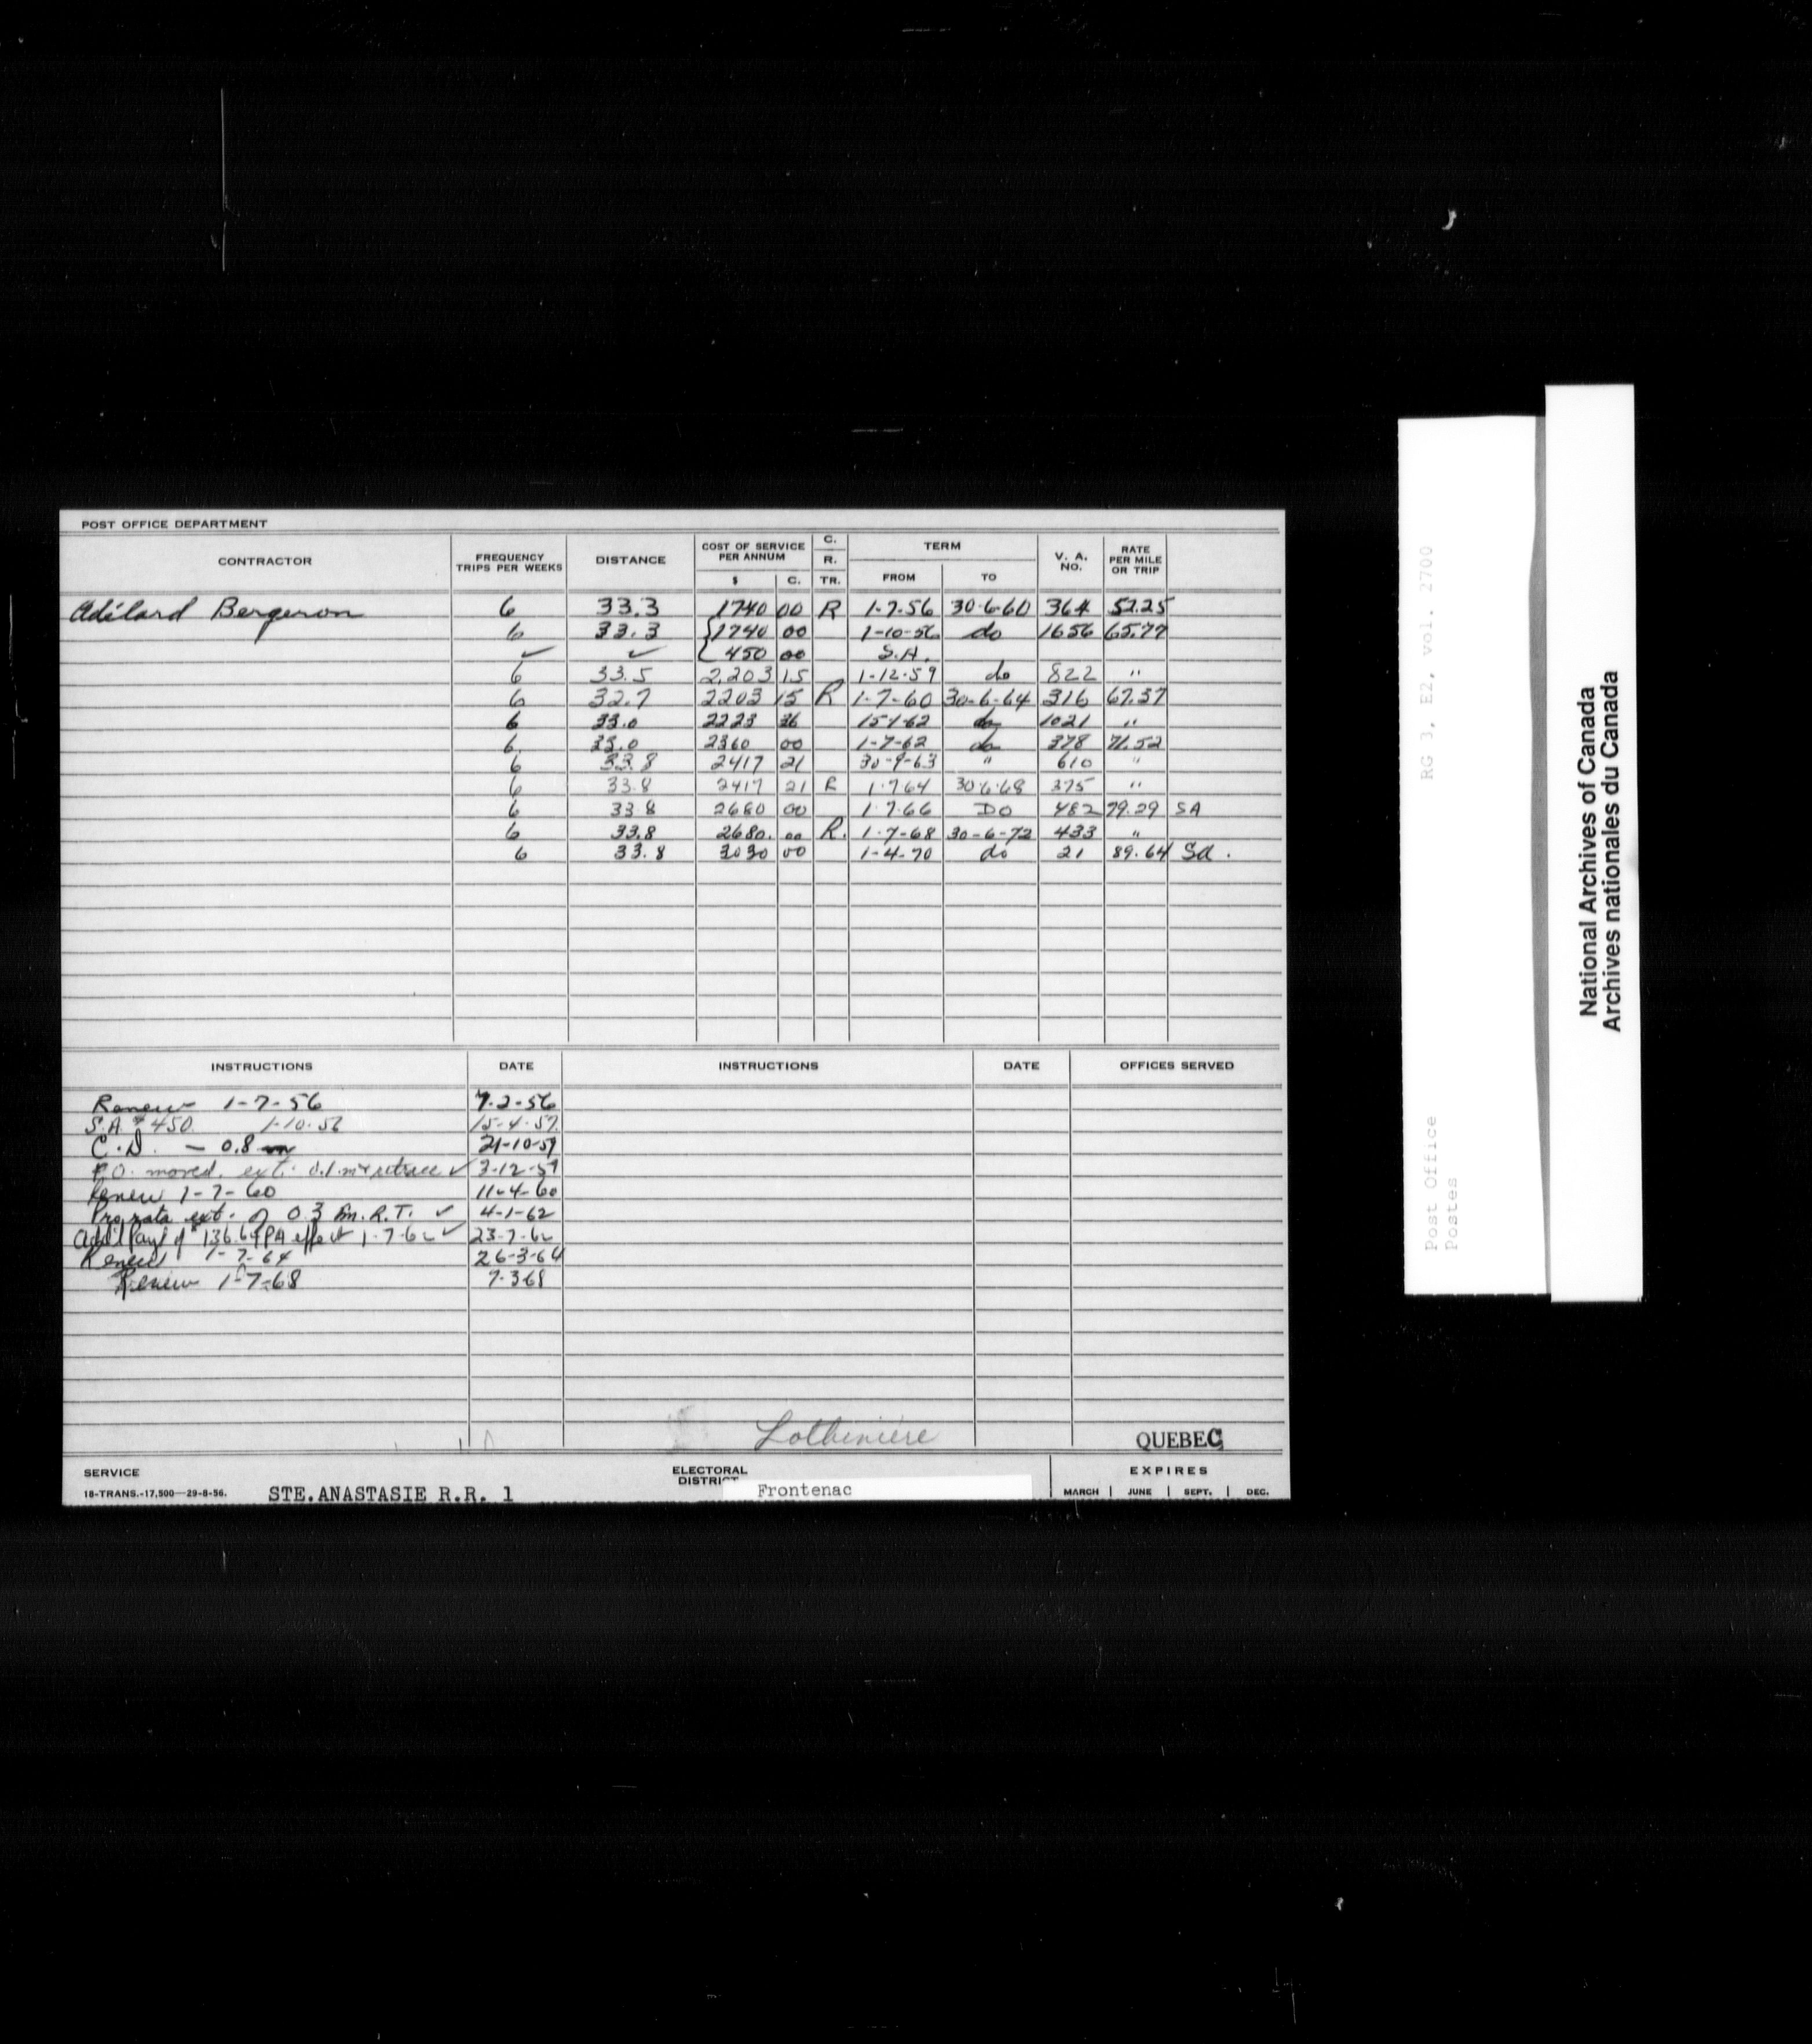 POST OFFICE DEPARTMENT
CONTRACTOR FREQUENCY TRIPS PER WEEKS DISTANCE COST OF SERVICE PER ANNUM $ C. C. R. TR. TERM FROM TO V. A. NO. RATE PER MILE OR TRIP
Adélard Bergeron 6 33.3 1740 00 R 1-7-56 30-6-60 364 52.25
6 33.3 1740 00 1-10-56 do 1656 65.77
✓ ✓ 450 00 S.A.
6 33.5 2,203 15 1-12-59 do 822 "
6 32.7 2203 15 R 1-7-60 30-6-64 316 67.37
6 33.0 2223 36 15-1-62 do 1021 "
6. 33.0 2360 00 1-7-62 do 378 71.52
6 33.8 2417 21 30-9-63 " 610 "
6 33.8 2417 21 R 1-7 64 30-6-68 375 "
6 33.8 2680 00 1-7-66 DO 482 79.29 SA
6 33.8 2680. 00 R. 1-7-68 30-6-72 433 "
6 33.8 3030 00 1-4-70 do 21 89.64 Sa.
INSTRUCTIONS DATE INSTRUCTIONS DATE OFFICES SERVED
Renew 1-7-56 7-2-56
S.A. $450. 1-10-56 15-4-57
C.D. - 0.8 m 21-10-59
P.O. moved. ext. 0.1 m ✓ 3-12-59
Renew 1-7-60 11-4-60
Pro rata ext. of 0.3 m. R.T. ✓ 4-1-62
Add'l Payt of $136.64 PA effect 1-7-62 ✓ 23-7-62
Renew 1-7-64 26-3-64
Renew 1-7-68 7-3-68
Lotbiniere
QUEBEC
SERVICE STE.ANASTASIE R.R. 1
18-TRANS.-17,500—29-8-56.
ELECTORAL DISTRICT Frontenac
EXPIRES
MARCH | JUNE | SEPT. | DEC.
RG 3, E2, vol. 2700
Post Office
Postes
National Archives of Canada
Archives nationales du Canada